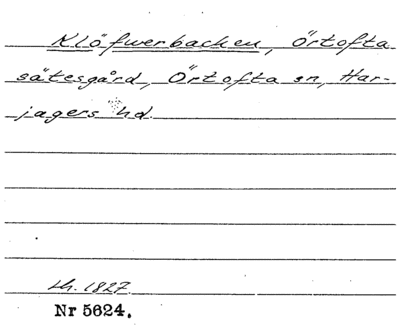 Klöfwerbacken, Örtofta
sätesgård, Örtofta sn, Har-
jagers hd.
Lh. 1827
Nr 5624.